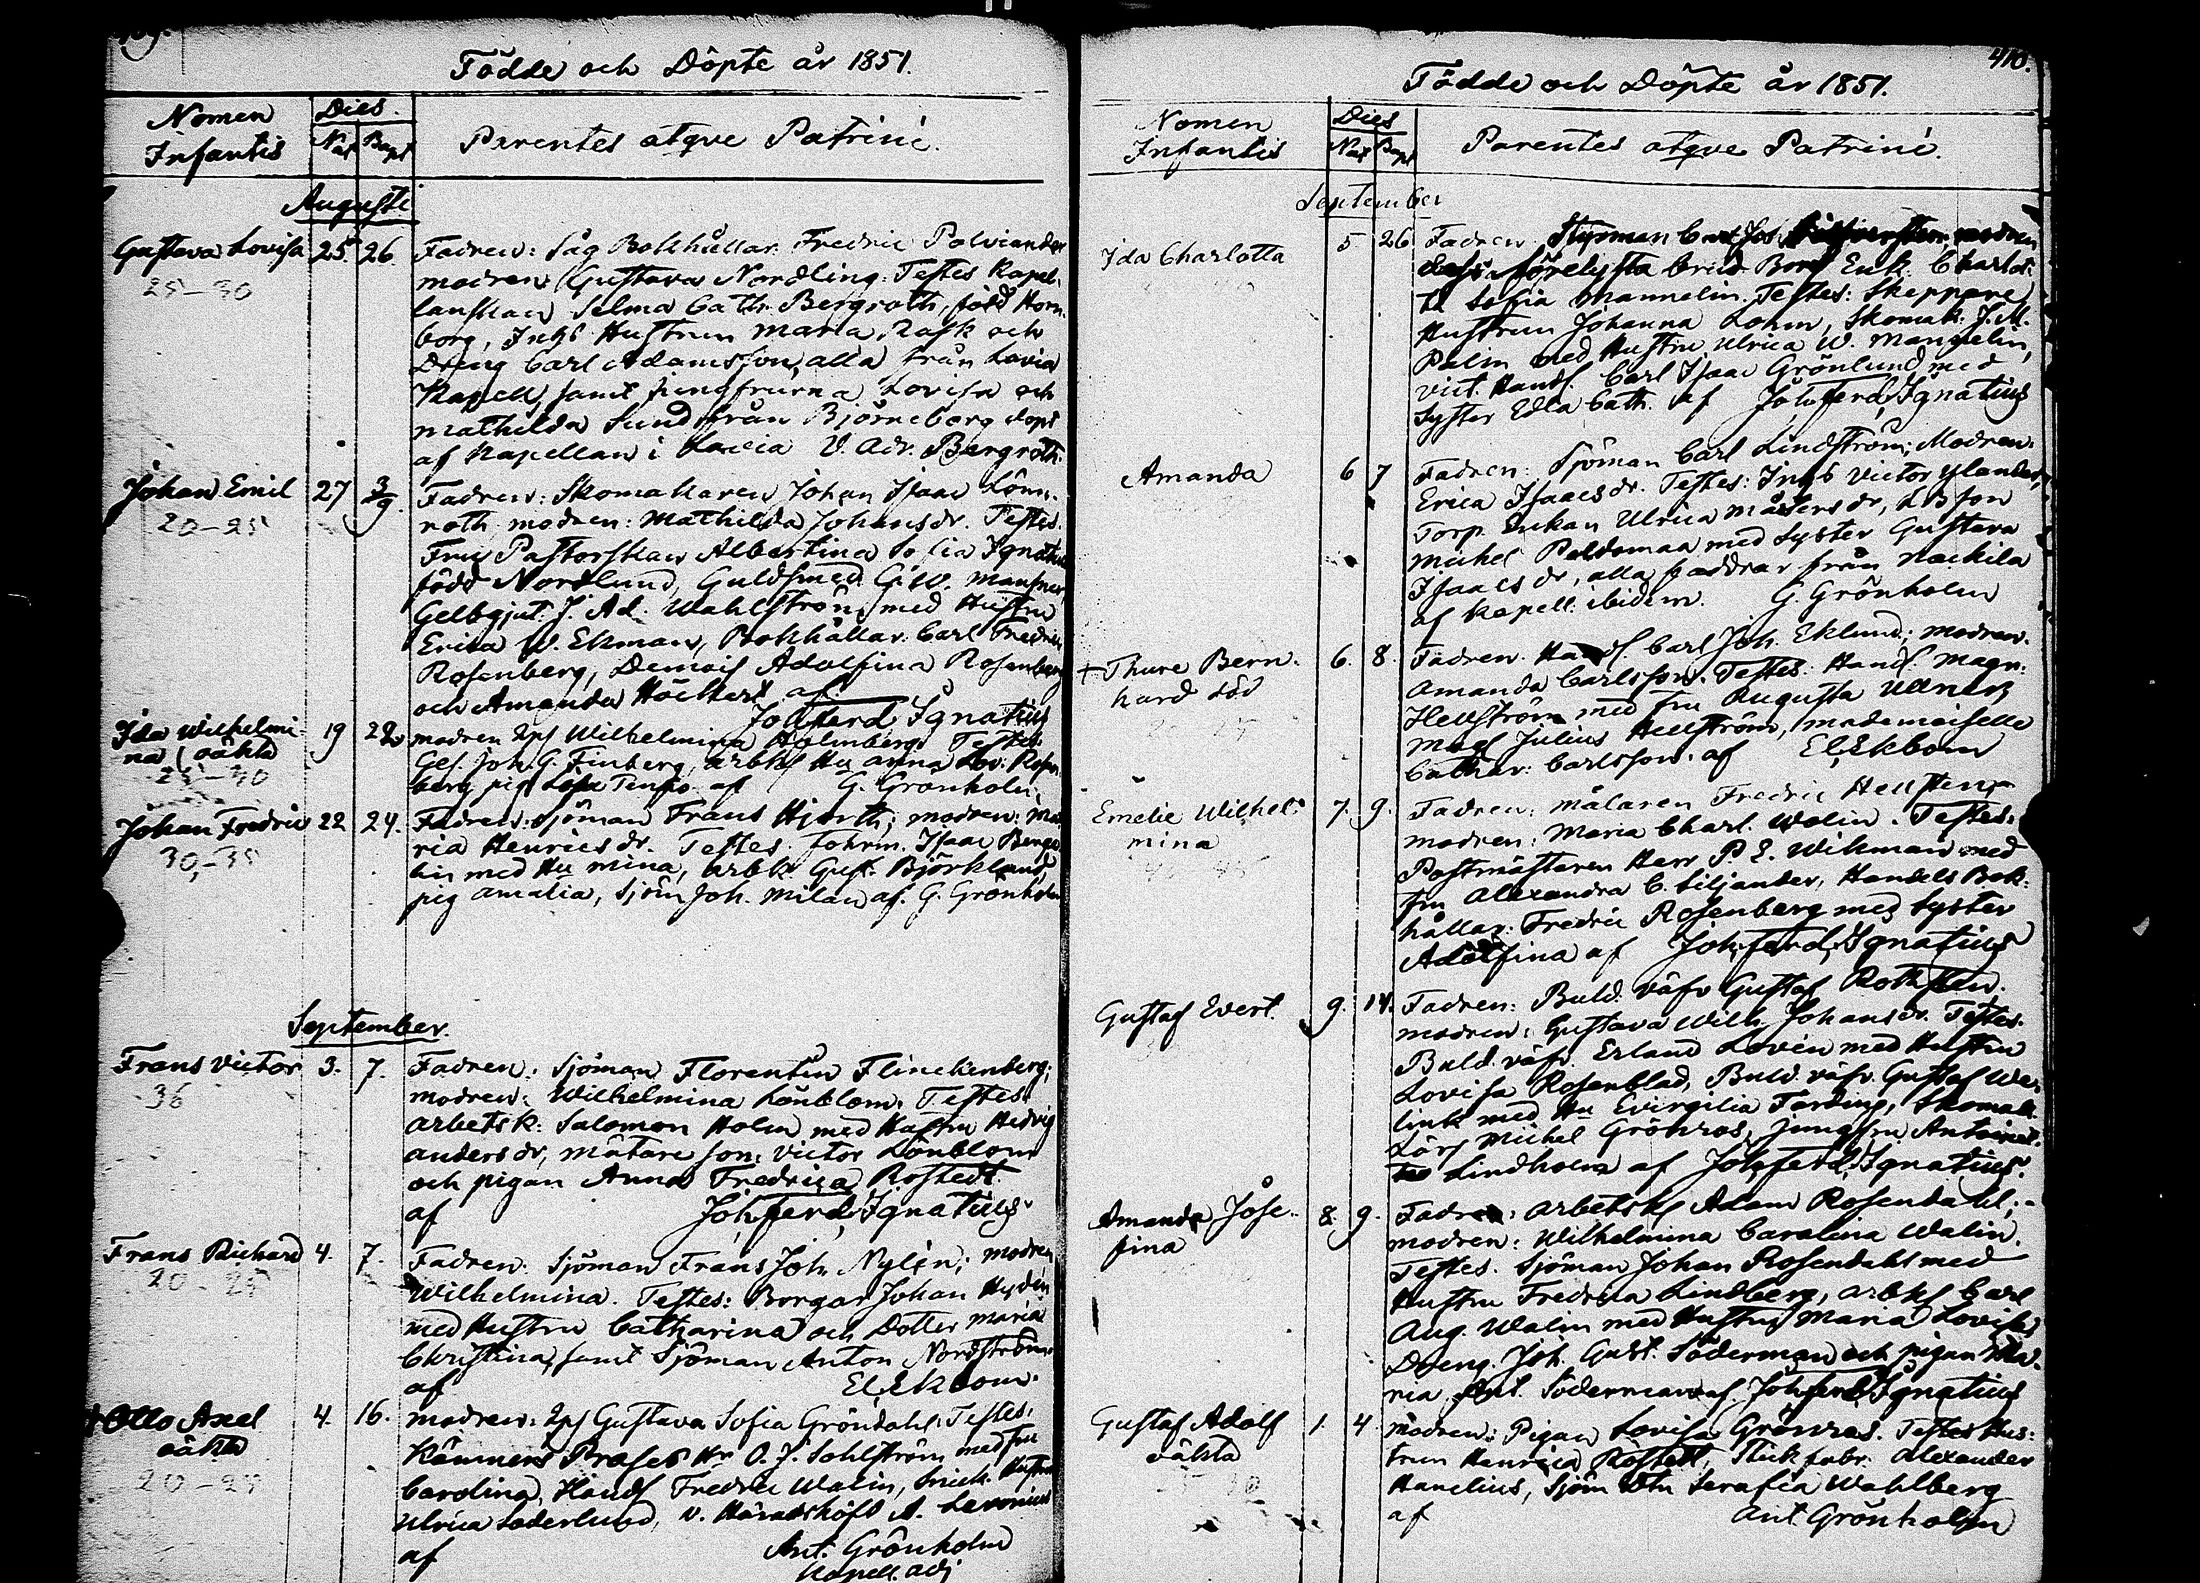 409.
Födde och Döpte år 1851.
Nomen Infantis
Dies.
Nat Bapt
Parentes atqve Patrini.
Augusti
Gustava Lovisa 25 26. Fadren: Såg Bokhållar. Fredric Polviander
25-30
modren Gustava Nordling. Testes Kapel-
lanskan Selma Cath. Bergroth, född Horn-
borg, Inhs Hustrun Maria Rask och
Dreng Carl Adamsson, alla från Lavia
Kapell, samt jungfrurna Lovisa och
Mathilda Sund från Björneborg döpt
af Kapellan i Lavia V. Adr. Bergroth.
Johan Emil 27 3/9. Fadren: Skomakaren Johan Isaac Lönn-
20-25
roth modren: Mathilda Johansdr. Testes.
Fru Pastorskan Albertina Sofia Ignatius
född Nordlund, Guldsmed. G. W. Mansner
Gelbgjut. J. Ad. Wahlström med Hustru
Erica W. Ekman, Bokhållar. Carl Fredric
Rosenberg, Demois Adolfina Rosenberg
och Amanda Höckert af.
Joh. ferd. Ignatius
Ida Wilhelmi- 19 22 modren Wilhelmina Holmberg. Testes.
na (oäkta
25-30
Ges. Joh. G. Finberg, arbks Hu Anna Lov.
berg, pig af G. Grönholm
Johan Fredric 22 24. Fadren: Sjöman Frans Hjorth; modren: Ma-
30-35
ria Henricsdr. Testes. Isaac Berge-
lin med Hu Mina, arbk Gust. Björklund,
pig Amalia, Sjöm Joh. Milan af. G. Grönholm
September.
Frans Victor 3. 7. Fadren: Sjöman Florentin Flinckenberg;
36
modren: Wilhelmina Lönblom. Testes.
Arbetsk: Salomon Holm med Hustru Hedvig
Andersdr, Mätare son: Victor Lönblom
och pigan Anna Fredrica Rostedt.
af Joh. ferd. Ignatius.
Frans Richard 4. 7. Fadren: Sjöman Frans Joh. Nylén; modren
20-25
Wilhelmina. Testes: Borgar Johan Hydén
med Hustru Catharina och Dotter Maria
Christina, samt Sjöman Anton Nordström.
af El. Ekbom.
Otto Axel 4. 16. modren: Gustava Sofia Gröndahl. Testes.
oäkta
Kämners Præses Hr O. J. Sohlström med fru
Carolina, Hands Fredric Walin, Hustru
Ulrica Söderlund, V. Häradshöfd A. Lavonius
af Ant. Grönholm
Kapell. adj
410.
Födde och Döpte år 1851.
Nomen Infantis
Dies
Nat Bapt
Parentes atqve Patrini.
September
Ida Charlotta 5 26 Fadren. Styrman Carl Joh. modren
Enk. Charlot-
ta Sofia Mannelin. Testes: Skeppare
Hustrun Johanna Lohm, Skomak. J. M.
Palin med Hustru Ulrica W. Mannelin,
vict. Hands. Carl Isaac Grönlund med
Syster Edla Cath. af Joh. ferd. Ignatius
Amanda 6 7 Fadren: Sjöman Carl Lindström; Modren.
Erica Isaacsdr. Testes: Inhs Victor Ylander,
Torp. Enkan Ulrica Mårtensdr,
Michel Paldamaa med Syster Gustava
Isaacsdr, alla faddrar från Nackila
af Kapell. ibidem. G. Grönholm
+ Thure Bern- 6. 8. Fadren. Carl Joh. Eklund; modren.
hard död
Amanda Carlsson. Testes. Hands. Magn.
Hellström med fru Augusta
Julius Hellström, mademoiselle
Cathar: Carlsson. af El. Ekbom
Emelie Wilhel- 7. 9. Fadren: målaren Fredric Hellsten,
mina
modren: Maria Charl. Walin. Testes:
Postmästaren Herr P. E. Wikman med
fru Alexandra C. Liljander, Handels Bok-
hållar. Fredric Rosenberg med Syster
Adolfina af Joh. ferd. Ignatius
Gustaf Evert. 9. 14. Fadren: Buld. väfv Gustaf Rothsten.
modren: Gustava Wilh. Johansdr. Testes.
Buld. väfv. Erland Lovén med Hustru
Lovisa Rosenblad, Buld. väfv. Gustaf We-
link med Hu Evirgilia Tarding, Skomak.
Lärs Michel Grönros, Jungfru Antoinet-
te Lindholm af Joh. ferd. Ignatius.
Amanda Jose- 8. 9. Fadren: arbetsk Adam Rosendahl;
fina
modren: Wilhelmina Carolina Walin.
Testes. Sjöman Johan Rosendahl med
Hustru Fredrica Lindberg, arbks Carl
Aug. Walin med Hustru Maria Lovisa
Dreng. Joh. Gust. Söderman och pigan Ma-
ria Söderman af Joh. ferd. Ignatius
Gustaf Adolf 1. 4. modren: Pigan Lovisa Grönros. Testes Hus-
oäkta
trun Henrica Rostedt, Alexander
Hanelius, Sjöm Serafia Wahlberg
af Ant. Grönholm